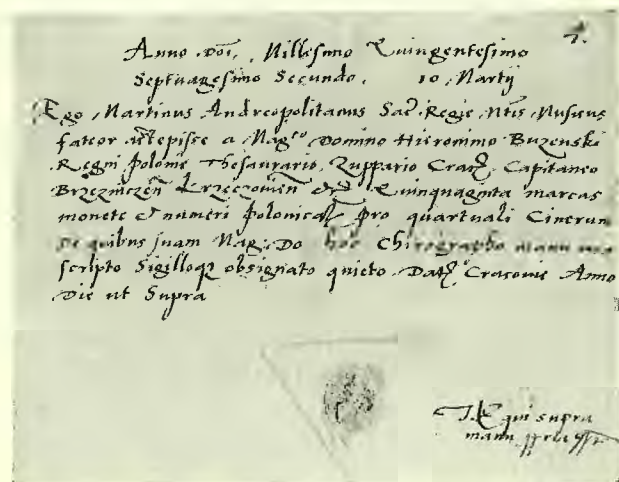 7.
Anno Doi, Millesimo Quingentesimo
Septuagesimo Secundo. 10 Martij
Ego Martinus Andreopolitanus Sac. Regie Mtis Musicus
fateor accepisse a Magco Domino Hieronimo Buzenski
Regni Polonie Thesaurario, Zuppario Crac. Capitaneo
Brzeznicen Krzeczowien Quinquaginta marcas
monete et numeri polonical. pro quartuali Cinerum
De quibus suam Mag. Do hoc Chirographo manu mea
scripto Sigilloq obsignato quieto. Dat. Cracovie Anno
Die ut Supra
Qui supra
manu ppria